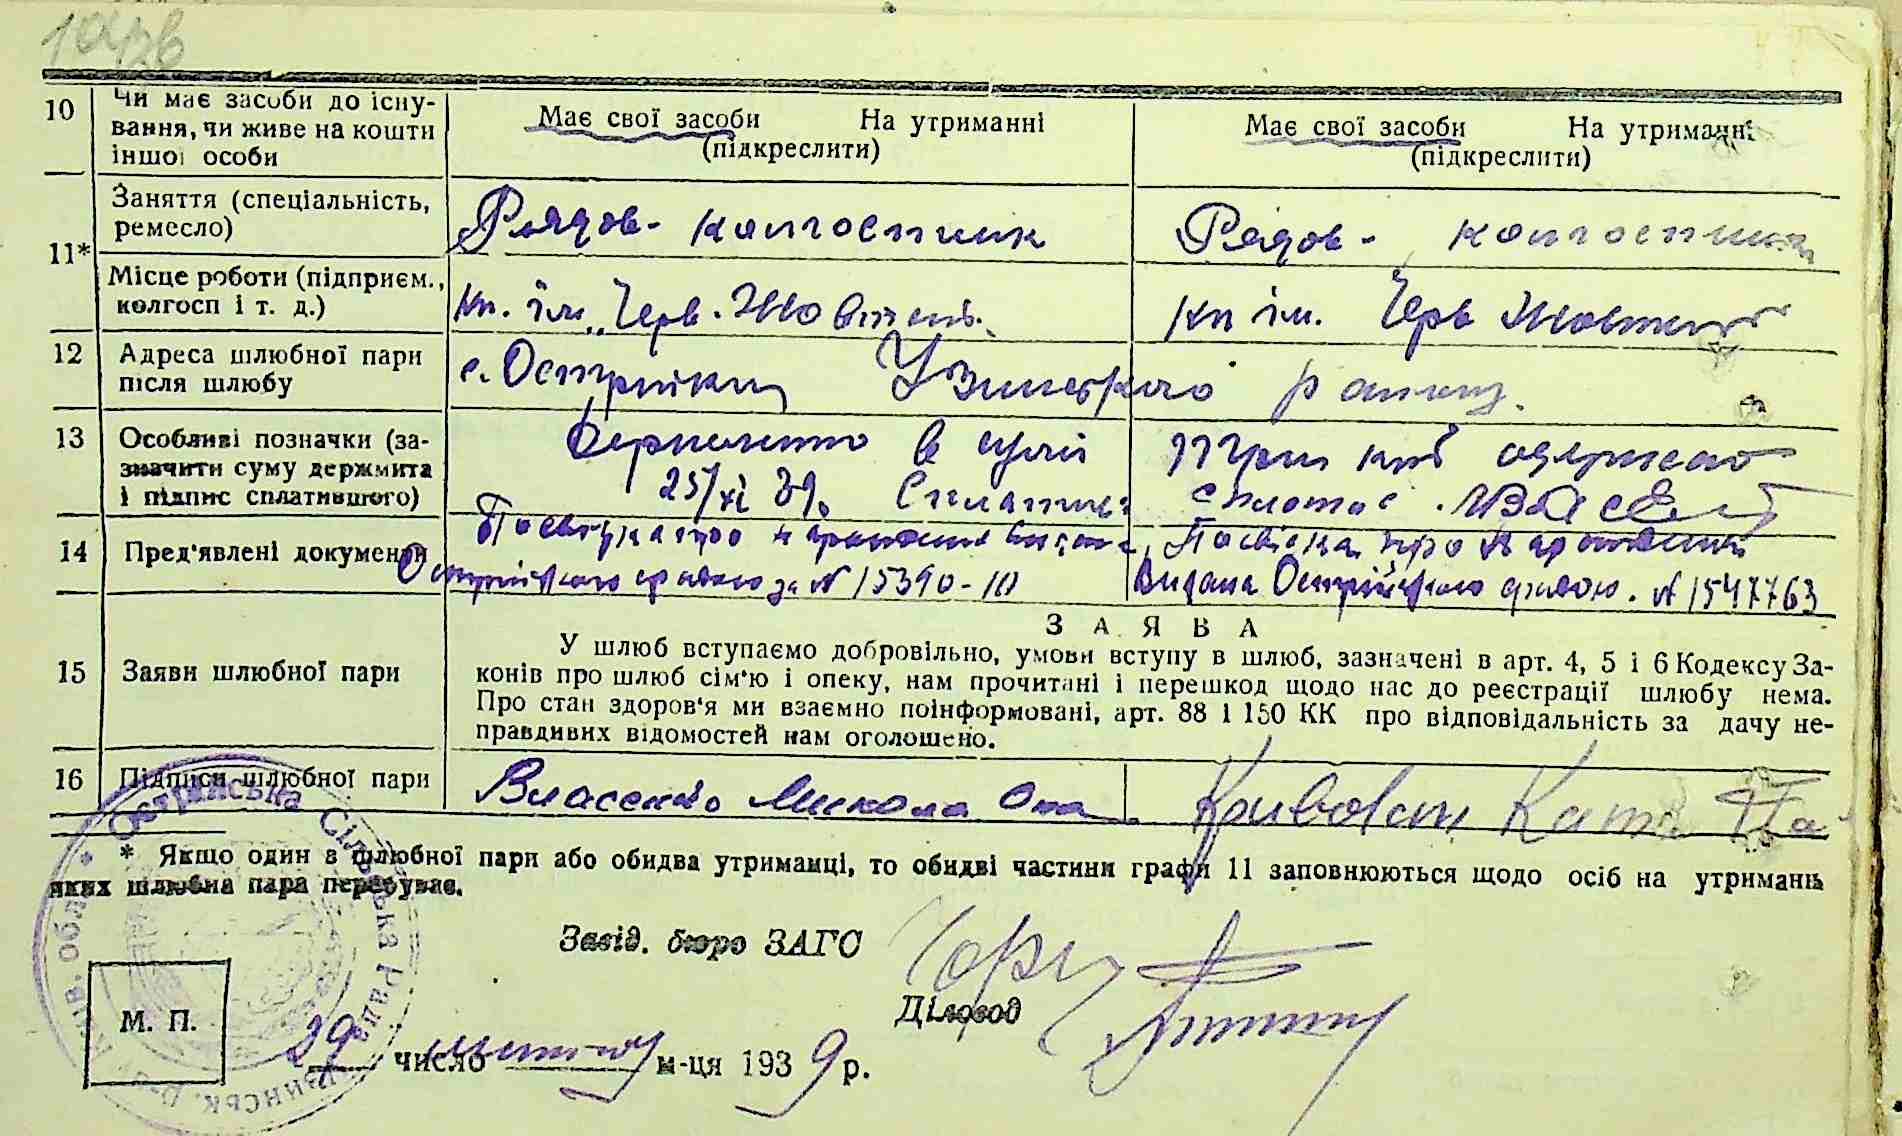 10 Чи має засоби до існу-
вання, чи живе на кошти
іншої особи
Має свої засоби На утриманні
(підкреслити)
Має свої засоби На утриманні
(підкреслити)
11* Заняття (спеціальність,
ремесло)
Рядов- колгоспник
Рядов- колгоспниця
Місце роботи (підприєм.,
колгосп і т. д.)
Кп. ім. „Черв. Жовтень
кп ім. Черв Жовтень
12 Адреса шлюбної пари
після шлюбу
с. Острійки Узинського району.
13 Особливі позначки (за-
значити суму держмита
і підпис сплатившого)
Держмито в сумі три крб одержано
25/XI 39. Сплатив
14 Пред'явлені документи
Посвідка про народження видана
Острійською срадою за № 15390-10
Посвідка про народження
Видана Острійською срадою. № 1547763
15 Заяви шлюбної пари
ЗАЯВА
У шлюб вступаємо добровільно, умови вступу в шлюб, зазначені в арт. 4, 5 і 6 Кодексу За-
конів про шлюб сім'ю і опеку, нам прочитані і перешкод щодо нас до реєстрації шлюбу нема.
Про стан здоров'я ми взаємно поінформовані, арт. 88 і 150 КК про відповідальність за дачу не-
правдивих відомостей нам оголошено.
16 Підписи шлюбної пари
Власенко Микола
* Якщо один з шлюбної пари або обидва утриманці, то обидві частини графи 11 заповнюються щодо осіб на утриманні
яких шлюбна пара перебуває.
Завід. бюро ЗАГС
Діловод
М. П.
29 число м-ця 1939 р.
Острійська Сільська Рада